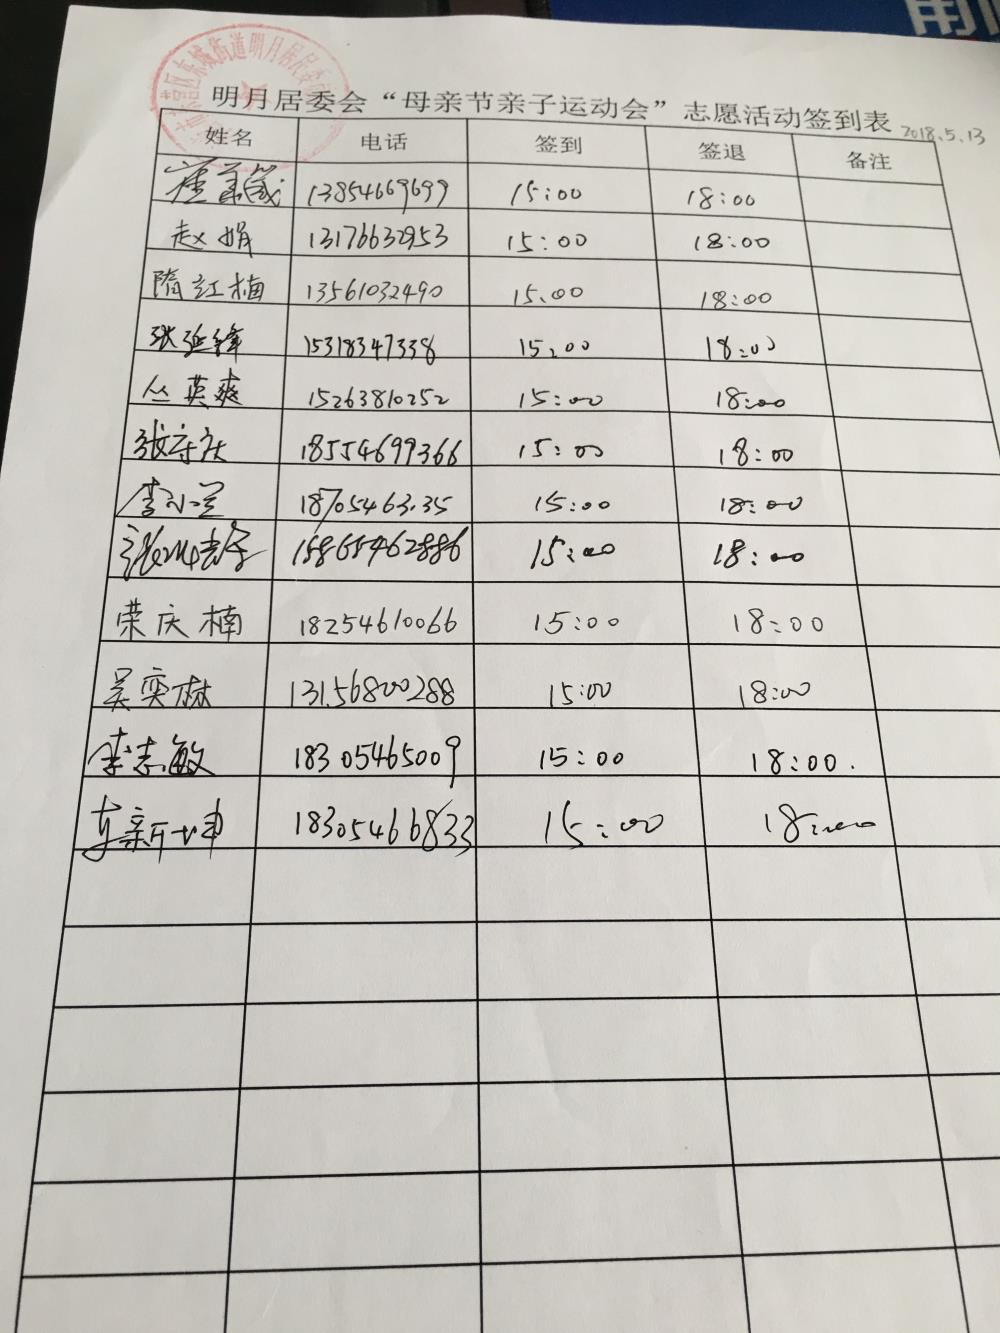 明月居委会“母亲节亲子运动会”志愿活动签到表 2018.5.13
姓名 电话 签到 签退 备注
13854669699 15:00 18:00
赵娟 13176632953 15:00 18:00
隋江楠 13561032490 15.00 18:00
张延锋 15318347338 15:00 18:00
丛英爽 15263810252 15:00 18:00
张守庆 18554699366 15:00 18:00
李小兰 18705463.35 15:00 18:00
15865462886 15:00 18:00
荣庆楠 18254610066 15:00 18:00
吴奕林 13156800288 15:00 18:00
李志敏 18305465009 15:00 18:00.
18305466833 15:00 18:00